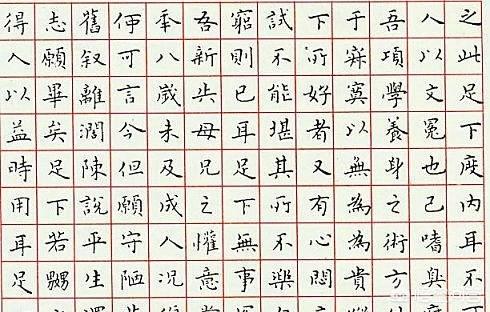 之此足下度內耳不
人以文冕也己嗜臭
吾頃學養身之術方
于寂寞以無為為貴
下所好者又有心悶
試不能堪其所不樂
窮則已耳足下無事
吾新失母兄之懽意
年八歲未及成人況
何可言今但願守陋
舊叙離濶陳說平生
志願畢矣足下若嬲
得人以益時用耳足